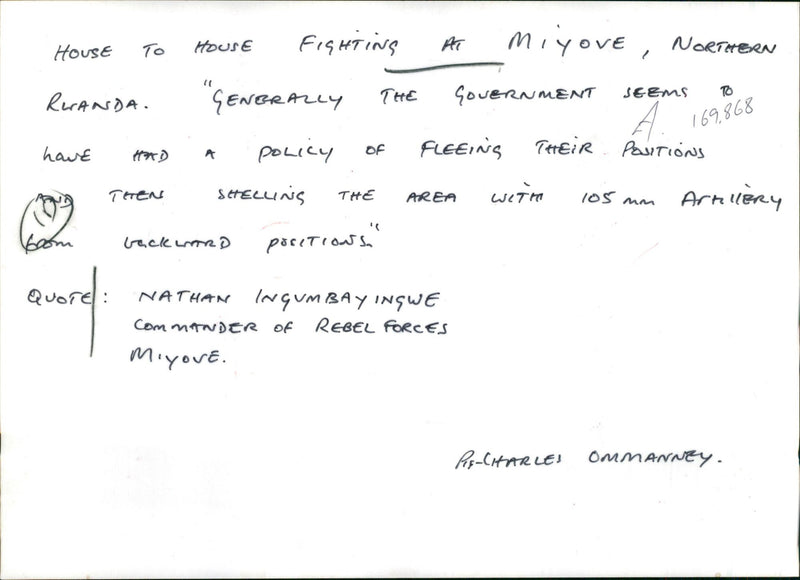 HOUSE TO HOUSE FIGHTING AT MIYOVE, NORTHERN
RWANDA. "GENERALLY THE GOVERNMENT SEEMS TO
A 169,868
HAVE HAD A POLICY OF FLEEING THEIR POSITIONS
AND THEN SHELLING THE AREA WITH 105 mm ARTILLERY
from BACKWARD POSITIONS."
QUOTE: NATHAN INGUMBAYINGWE
COMMANDER OF REBEL FORCES
MIYOVE.
CHARLES OMMANNEY.